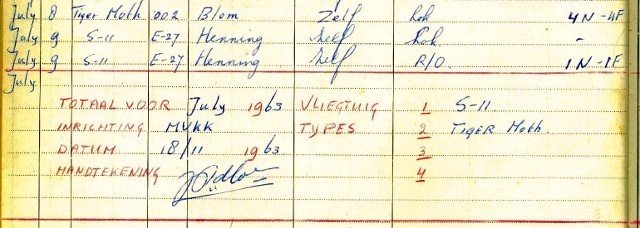 July 8 Tiger Moth 002 Blom Zelf Lok 4N-4F
July 9 S-11 E-27 Henning Self Lok -
July 9 S-11 E-27 Henning Self R/O. 1N-1F
July
TOTAAL VOOR July 1963 VLIEGTUIG 1 S-11.
INRICHTING MVKK TYPES 2 TIGER Moth.
DATUM 18/11 1963 3
HANDTEKENING 4